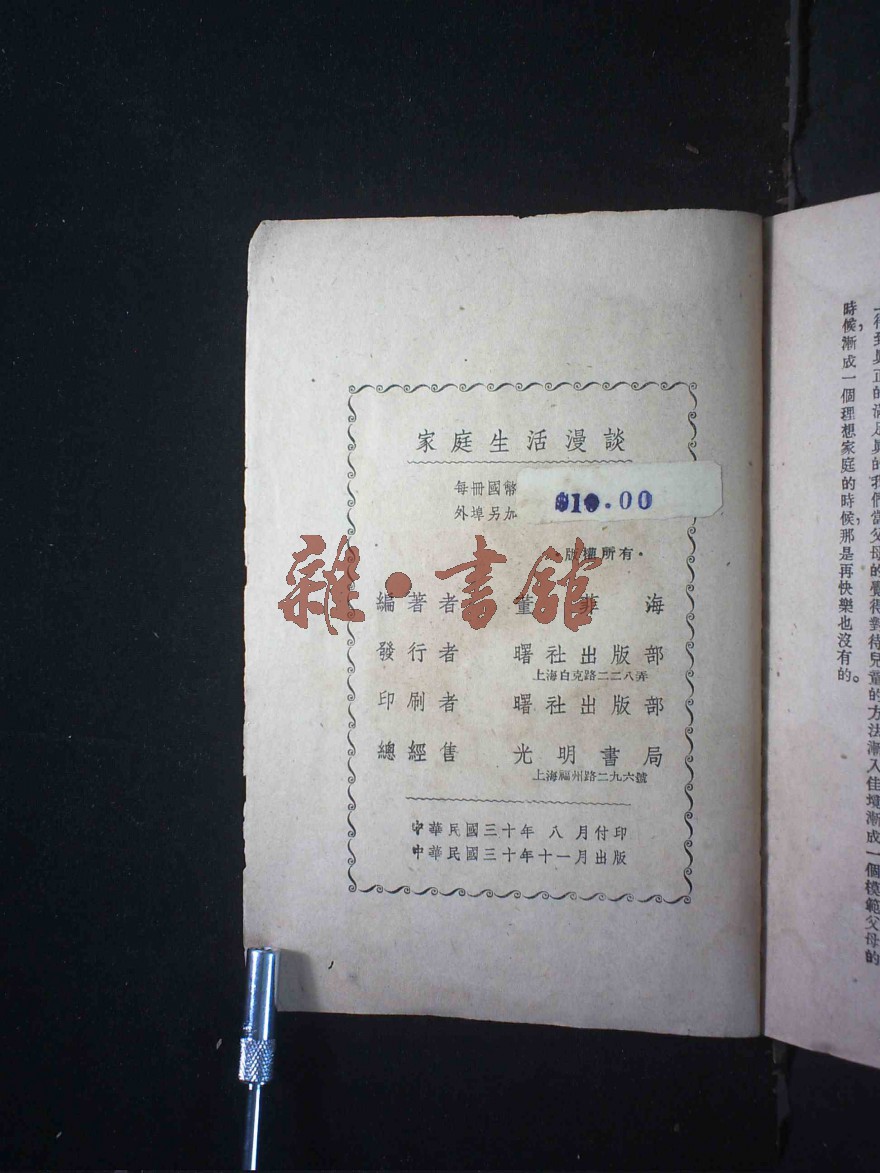 家庭生活漫談
每冊國幣
$10.00
外埠另加
·版權所有·
雜·書館
編著者 董 海
發行者 曙社出版部
上海白克路二二八弄
印刷者 曙社出版部
總經售 光明書局
上海福州路二九六號
中華民國三十年 八 月付印
中華民國三十年十一月出版
得到真正的滿足真的我們當父母的覺得對待兒童的方法漸入佳境漸成一個模範父母的
時候，漸成一個理想家庭的時候，那是再快樂也沒有的。